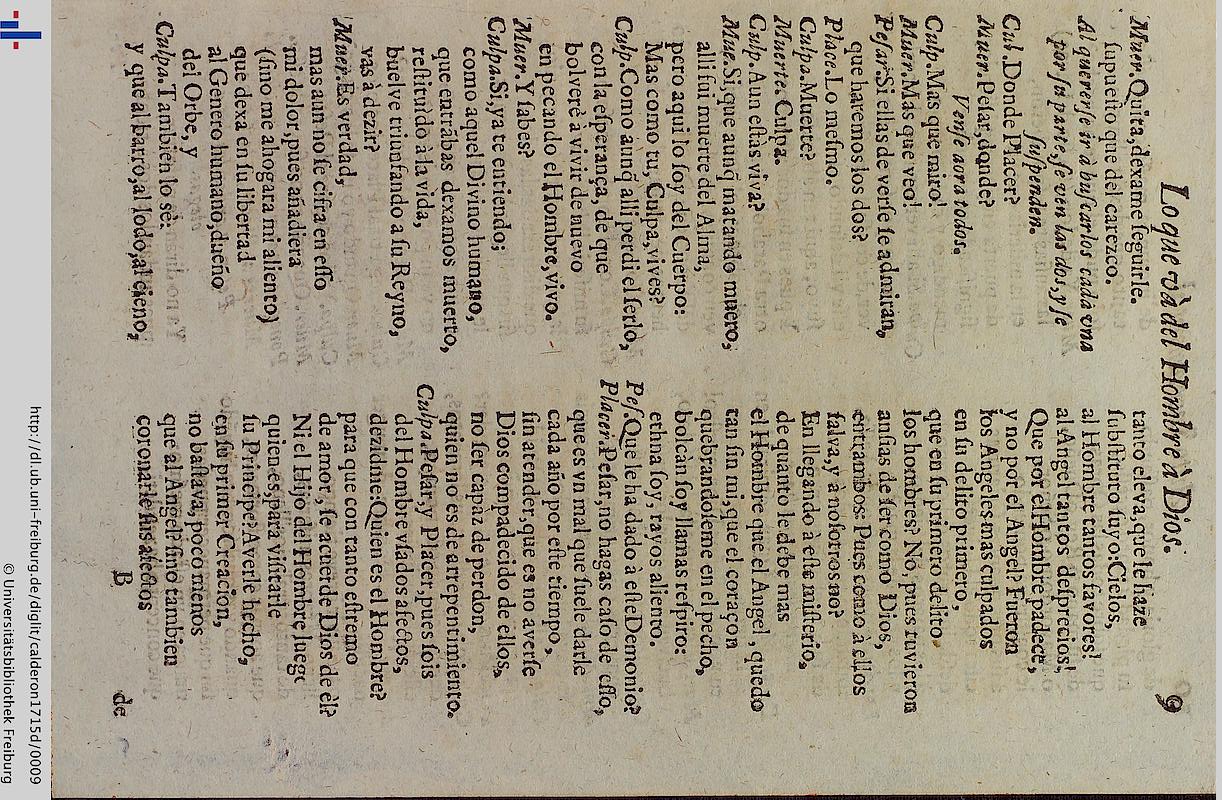 Lo que và del Hombre à Dios. 9
Muer. Quita, dexame seguirle.
supuesto que del carezco.
Al quererse ir à buscarlos cada una
por su parte, se ven las dos, y se
suspenden.
Cul. Donde Placer?
Muer. Pesar, donde?
Vense aora todos.
Culp. Mas que miro!
Muer. Mas que veo!
Pesar. Si ellas de verse se admiran,
que haremos los dos?
Place. Lo mesmo.
Culpa. Muerte?
Muerte. Culpa.
Culp. Aun estàs viva?
Mue. Si, que aunq̃ matando muero,
alli fui muerte del Alma,
pero aqui lo soy del Cuerpo:
Mas como tu, Culpa, vives?
Culp. Como aunq̃ alli perdi el serlo,
con la esperança, de que
bolverè à vivir de nuevo
en pecando el Hombre, vivo.
Muer. Y sabes?
Culpa. Si, ya te entiendo;
como aquel Divino humano,
que entrãbas dexamos muerto,
restituido à la vida,
buelve triunfando a su Reyno,
vas à dezir?
Muer. Es verdad,
mas aun no se cifra en esso
mi dolor, pues añadiera
(sino me ahogara mi aliento)
que dexa en su libertad
al Genero humano, dueño
del Orbe, y
Culpa. Tambien lo sè:
y que al barro, al lodo, al cieno,
tanto eleva, que le haze
substituto suyo: Cielos,
al Hombre tantos favores!
al Angel tantos desprecios!
Que por el Hombre padece,
y no por el Angel? Fueron
los Angeles mas culpados
en su delito primero,
que en su primero delito
los hombres? No, pues tuvieron
ansias de ser como Dios,
entrambos: Pues como à ellos
salva, y à nosotros no?
En llegando à este misterio,
de quanto le debe mas
el Hombre que el Angel, quedo
tan sin mi, que el coraçon
quebrandoseme en el pecho,
bolcàn soy, llamas respiro:
ethna soy, rayos aliento.
Pes. Que le ha dado à este Demonio?
Placer. Pesar, no hagas caso de esso,
que es vn mal que suele darle
cada año por este tiempo,
sin atender, que es no averse
Dios compadecido de ellos,
no ser capaz de perdon,
quien no es de arrepentimiento.
Culpa. Pesar, y Placer, pues sois
del Hombre vsados afectos,
dezidme: Quien es el Hombre?
para que con tanto estremo
de amor, se acuerde Dios de èl?
Ni el Hijo del Hombre, luego
quien es, para visitarle
su Principe? Averle hecho,
en su primer Creacion,
no bastava, poco menos
que al Angel? sino tambien
coronarle sus afectos
B de
http://dl.ub.uni-freiburg.de/diglit/calderon1715d/0009
© Universitätsbibliothek Freiburg